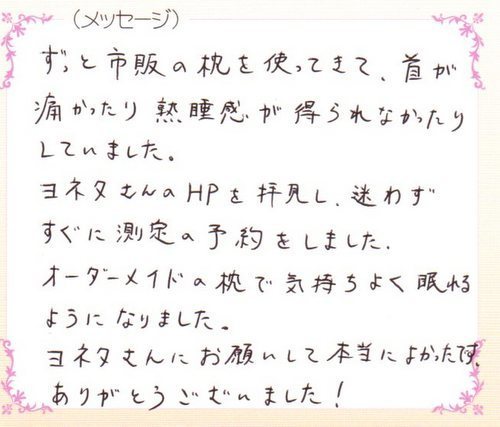 （メッセージ）
ずっと市販の枕を使ってきて、首が
痛かったり熟睡感が得られなかったり
していました。
ヨネタさんのHPを拝見し、迷わず
すぐに測定の予約をしました.
オーダーメイドの枕で気持ちよく眠れる
ようになりました。
ヨネタさんにお願いして本当によかったです.
ありがとうございました！